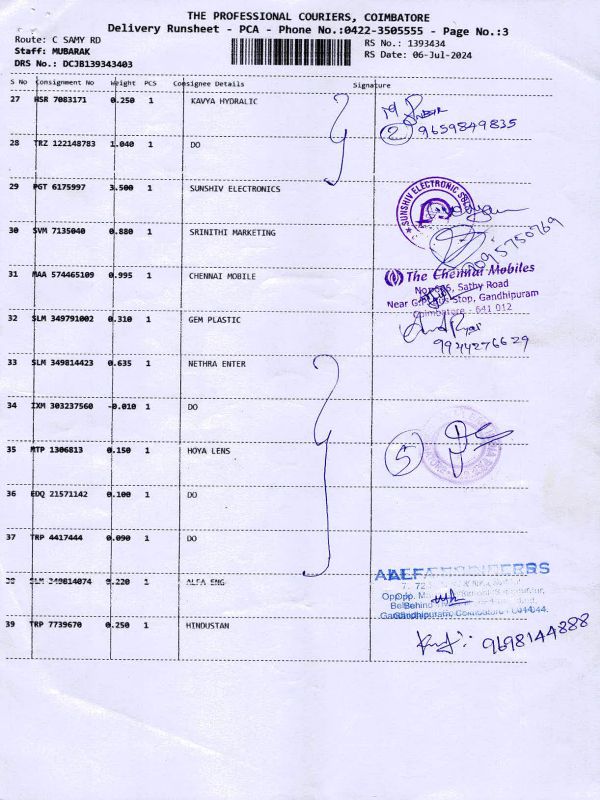 THE PROFESSIONAL COURIERS, COIMBATORE
Delivery Runsheet - PCA - Phone No.:0422-3505555 - Page No.:3
Route: C SAMY RD
RS No.: 1393434
Staff: MUBARAK
RS Date: 06-Jul-2024
DRS No.: DCJB139343403
S No Consignment No Weight PCS Consignee Details Signature
27 HSR 7083171 0.250 1 KAVYA HYDRALIC
2 9659849835
28 TRZ 122148783 1.040 1 DO
29 PGT 6175997 3.500 1 SUNSHIV ELECTRONICS
SUNSHIV ELECTRONIC
30 SVM 7135040 0.880 1 SRINITHI MARKETING
31 MAA 574465109 0.995 1 CHENNAI MOBILE
The Chennai Mobiles
Sathy Road
Near Stop, Gandhipuram
Coimbatore - 641 012
32 SLM 349791002 0.310 1 GEM PLASTIC
9944276629
33 SLM 349814423 0.635 1 NETHRA ENTER
34 IXM 303237560 -0.010 1 DO
35 MTP 1306813 0.150 1 HOYA LENS
5
36 EDQ 21571142 0.100 1 DO
37 TRP 4417444 0.090 1 DO
38 SLM 349814074 0.220 1 ALFA ENG
Behind
Gandhipuram, Coimbatore
39 TRP 7739670 0.250 1 HINDUSTAN
9698144888